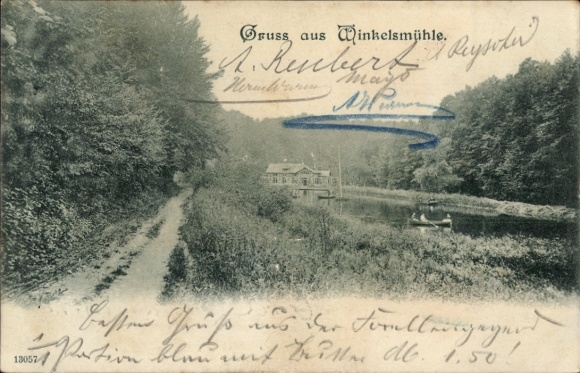 Gruss aus Winkelsmühle.
A. Reubert
Besten Gruß aus der Forellengegend
1 Portion blau mit Butter M. 1.50!
13057